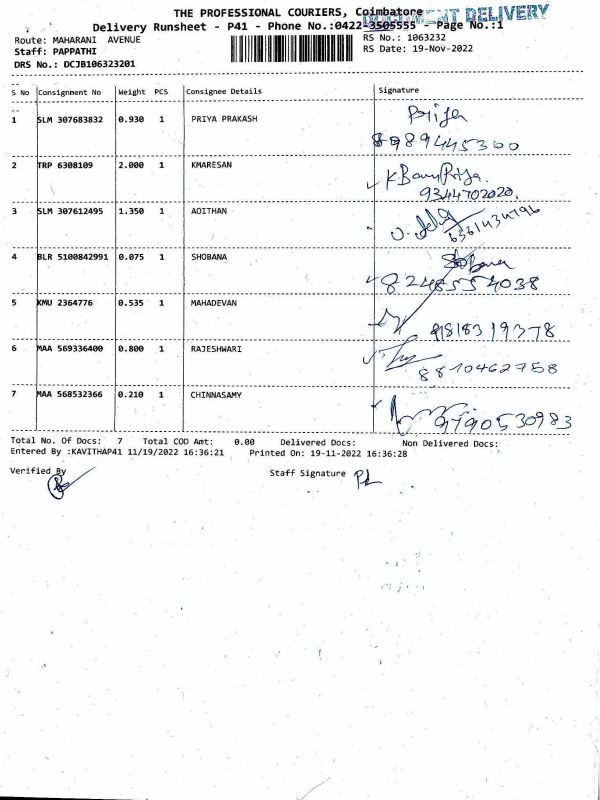 THE PROFESSIONAL COURIERS, Coimbatore
DOCUMENT DELIVERY
Delivery Runsheet - P41 - Phone No.:0422-3505555 - Page No.:1
Route: MAHARANI AVENUE
RS No.: 1063232
Staff: PAPPATHI
RS Date: 19-Nov-2022
DRS No.: DCJB106323201
S No Consignment No Weight PCS Consignee Details Signature
1 SLM 307683832 0.930 1 PRIYA PRAKASH Priya
8989445300
2 TRP 6308109 2.000 1 KMARESAN K.BanuPriya.
9344702020.
3 SLM 307612495 1.350 1 AOITHAN
6361434796
4 BLR 5100842991 0.075 1 SHOBANA Shobana
8248554038
5 KMU 2364776 0.535 1 MAHADEVAN
9818319378
6 MAA 569336400 0.800 1 RAJESHWARI
8810462758
7 MAA 568532366 0.210 1 CHINNASAMY
9790530983
Total No. Of Docs: 7 Total COD Amt: 0.00 Delivered Docs: Non Delivered Docs:
Entered By :KAVITHAP41 11/19/2022 16:36:21 Printed On: 19-11-2022 16:36:28
Verified By Staff Signature